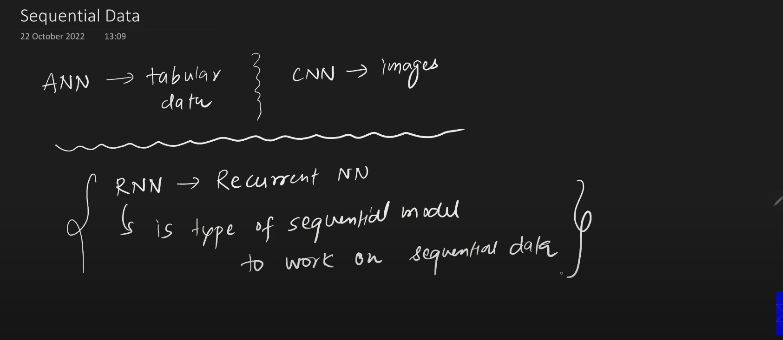 Sequential Data
22 October 2022 13:09
ANN → tabular data
CNN → images
RNN → Recurrent NN
↳ is type of sequential model
to work on sequential data